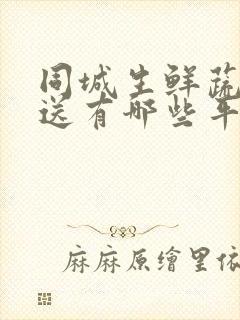 同城生鲜蔬
送有哪些平
麻麻原繪里依